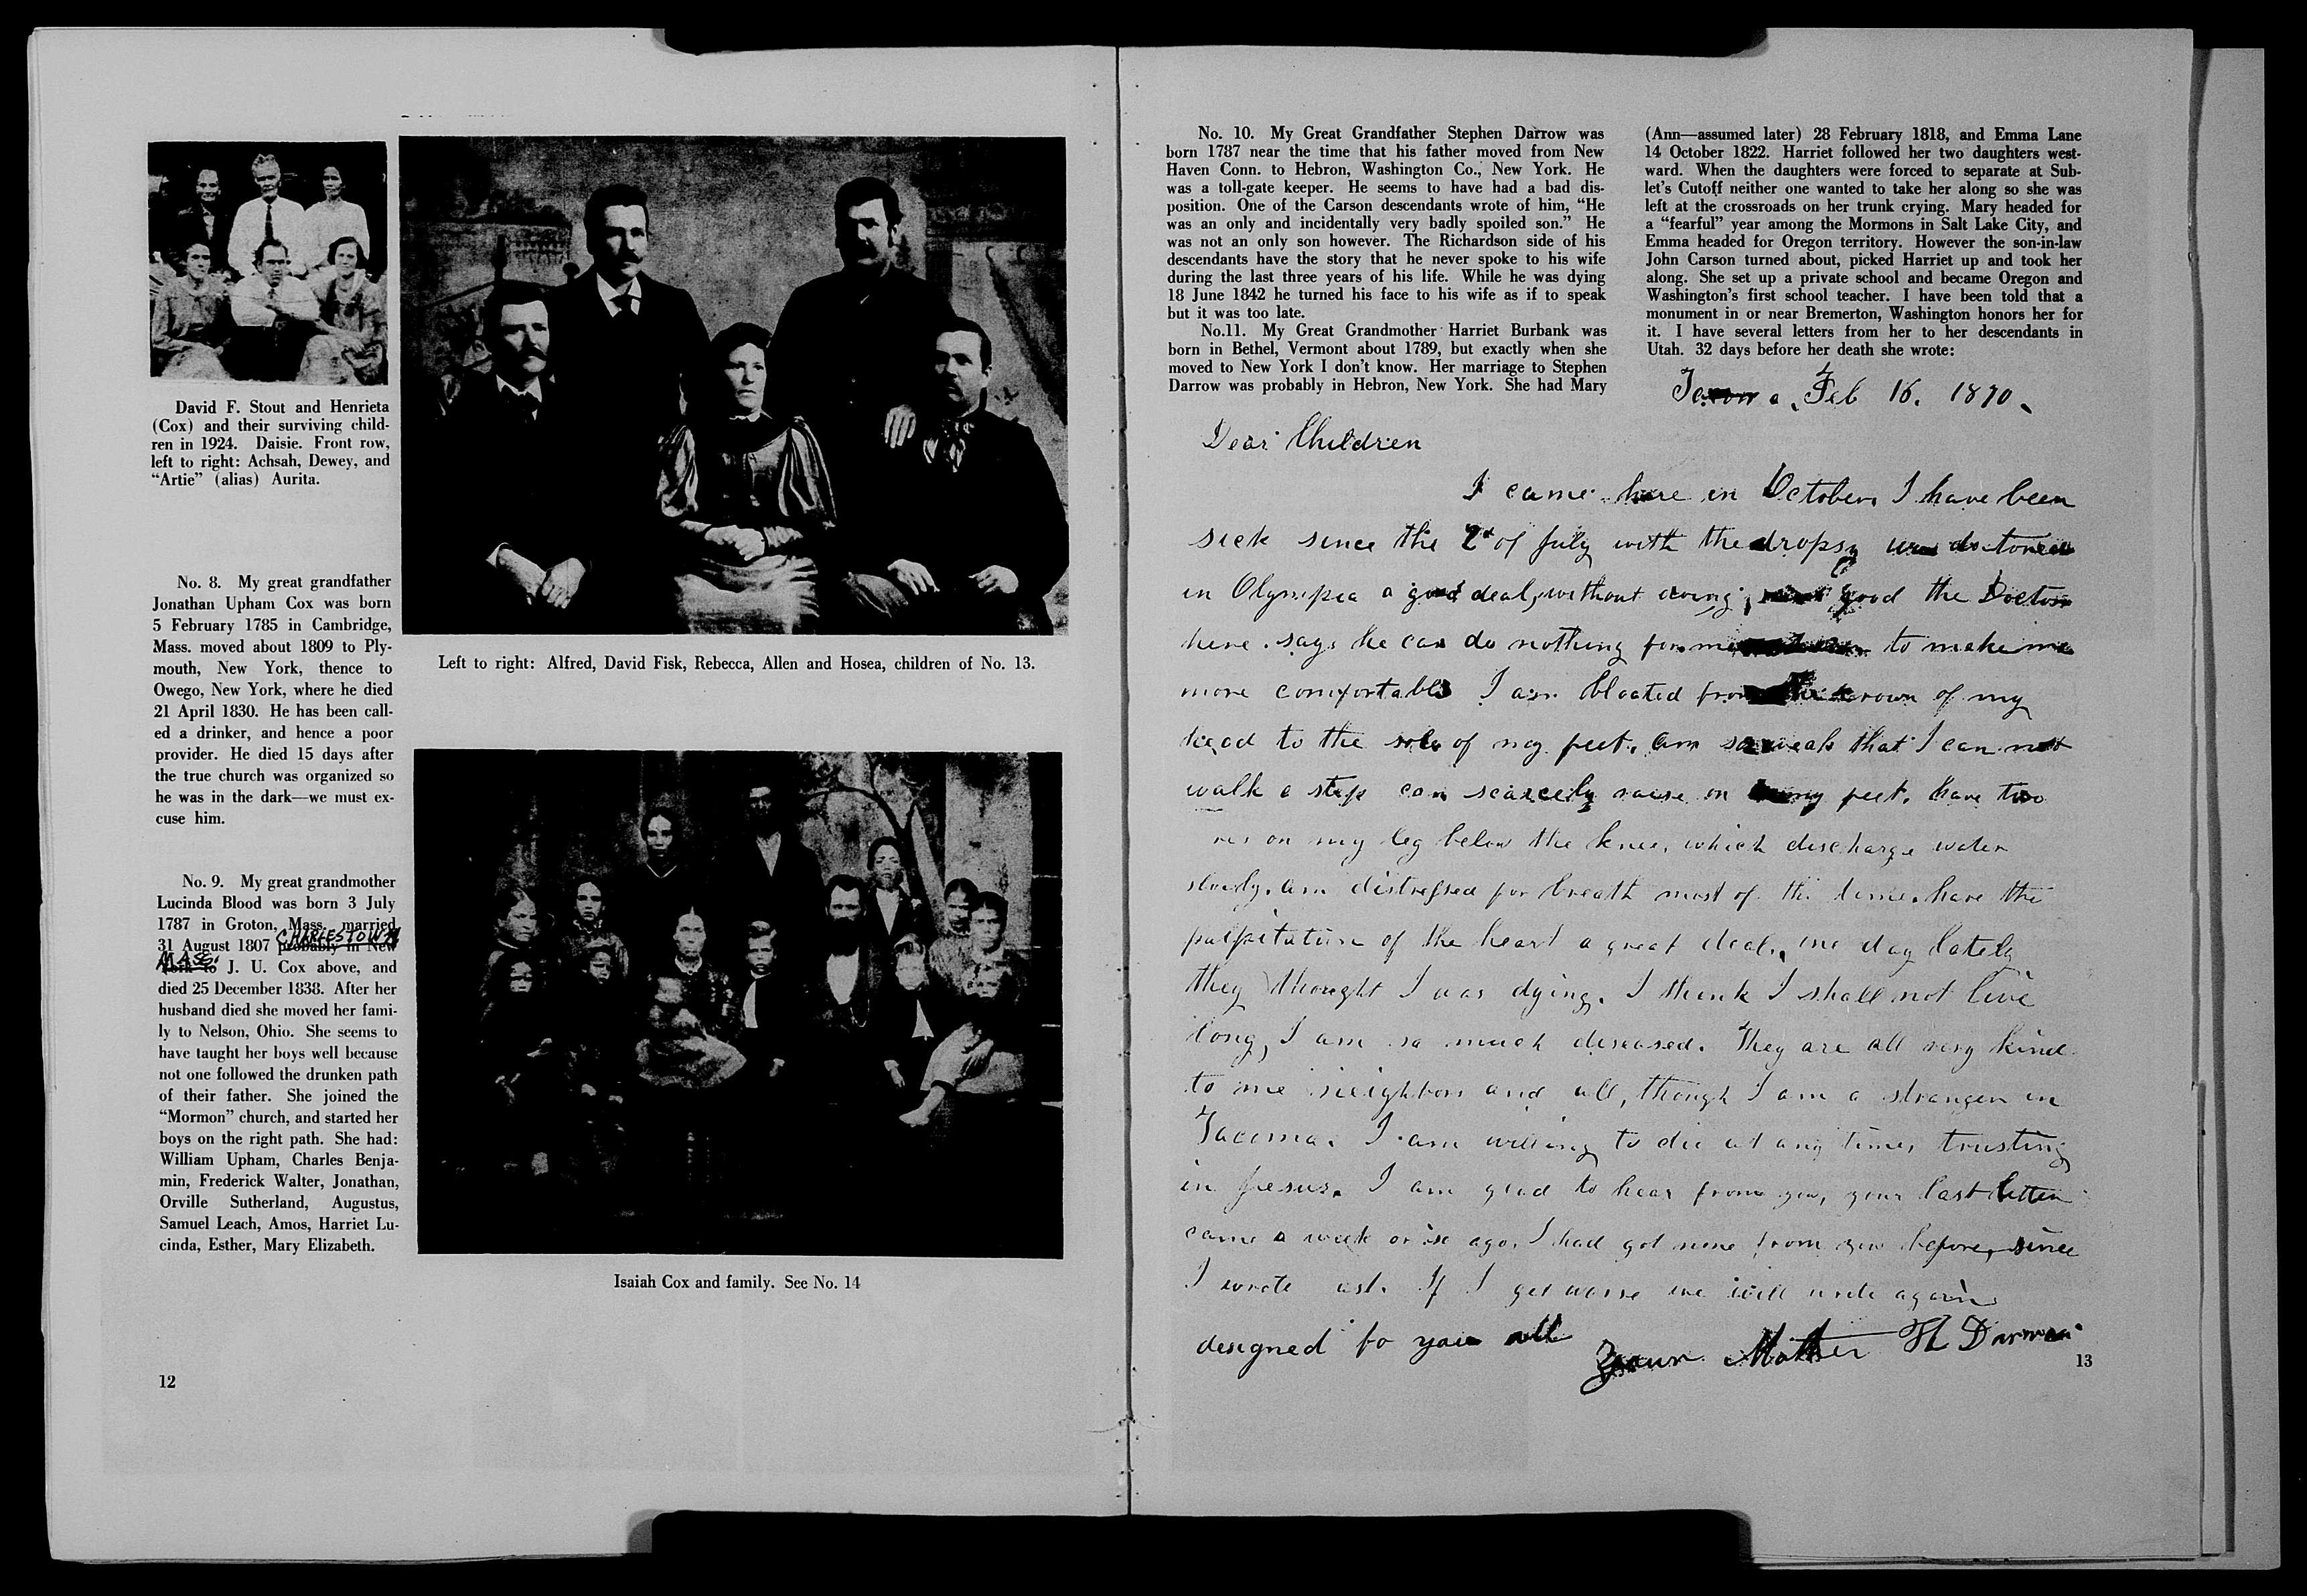 David F. Stout and Henrieta
(Cox) and their surviving child-
ren in 1924. Daisie. Front row,
left to right: Achsah, Dewey, and
“Artie” (alias) Aurita.
No. 8. My great grandfather
Jonathan Upham Cox was born
5 February 1785 in Cambridge,
Mass. moved about 1809 to Ply-
mouth, New York, thence to
Owego, New York, where he died
21 April 1830. He has been call-
ed a drinker, and hence a poor
provider. He died 15 days after
the true church was organized so
he was in the dark—we must ex-
cuse him.
No. 9. My great grandmother
Lucinda Blood was born 3 July
1787 in Groton, Mass. married
CHARLESTOWN
31 August 1807 probably in New
MASS.
York to J. U. Cox above, and
died 25 December 1838. After her
husband died she moved her fami-
ly to Nelson, Ohio. She seems to
have taught her boys well because
not one followed the drunken path
of their father. She joined the
“Mormon” church, and started her
boys on the right path. She had:
William Upham, Charles Benja-
min, Frederick Walter, Jonathan,
Orville Sutherland, Augustus,
Samuel Leach, Amos, Harriet Lu-
cinda, Esther, Mary Elizabeth.
12
Left to right: Alfred, David Fisk, Rebecca, Allen and Hosea, children of No. 13.
Isaiah Cox and family. See No. 14
No. 10. My Great Grandfather Stephen Darrow was
born 1787 near the time that his father moved from New
Haven Conn. to Hebron, Washington Co., New York. He
was a toll-gate keeper. He seems to have had a bad dis-
position. One of the Carson descendants wrote of him, “He
was an only and incidentally very badly spoiled son.” He
was not an only son however. The Richardson side of his
descendants have the story that he never spoke to his wife
during the last three years of his life. While he was dying
18 June 1842 he turned his face to his wife as if to speak
but it was too late.
No.11. My Great Grandmother Harriet Burbank was
born in Bethel, Vermont about 1789, but exactly when she
moved to New York I don’t know. Her marriage to Stephen
Darrow was probably in Hebron, New York. She had Mary
(Ann—assumed later) 28 February 1818, and Emma Lane
14 October 1822. Harriet followed her two daughters west-
ward. When the daughters were forced to separate at Sub-
let’s Cutoff neither one wanted to take her along so she was
left at the crossroads on her trunk crying. Mary headed for
a “fearful” year among the Mormons in Salt Lake City, and
Emma headed for Oregon territory. However the son-in-law
John Carson turned about, picked Harriet up and took her
along. She set up a private school and became Oregon and
Washington’s first school teacher. I have been told that a
monument in or near Bremerton, Washington honors her for
it. I have several letters from her to her descendants in
Utah. 32 days before her death she wrote:
Feb 16. 1870.
Dear Children
I came here in October, I have been
sick since the 2d of July with the dropsy was doctored
in Olympia a good deal, without doing good the Doctor
here says he can do nothing for me to make me
more comfortable I am bloated from the crown of my
head to the sole of my feet. am so weak that I can not
walk a step can scarcely raise on my feet. have two
on my leg below the knee, which discharge water
slowly. am distressed for breath most of the time. have the
palpitation of the heart a great deal., one day lately
they thought I was dying. I think I shall not live
long, I am so much diseased. They are all very kind
to me neighbors and all, though I am a stranger in
Tacoma. I am willing to die at any time, trusting
in Jesus. I am glad to hear from you, your last letter
came a week or so ago. I had got none from you before, since
I wrote last. If I get worse we will write again
designed to you all
Your Mother H Darrow
13